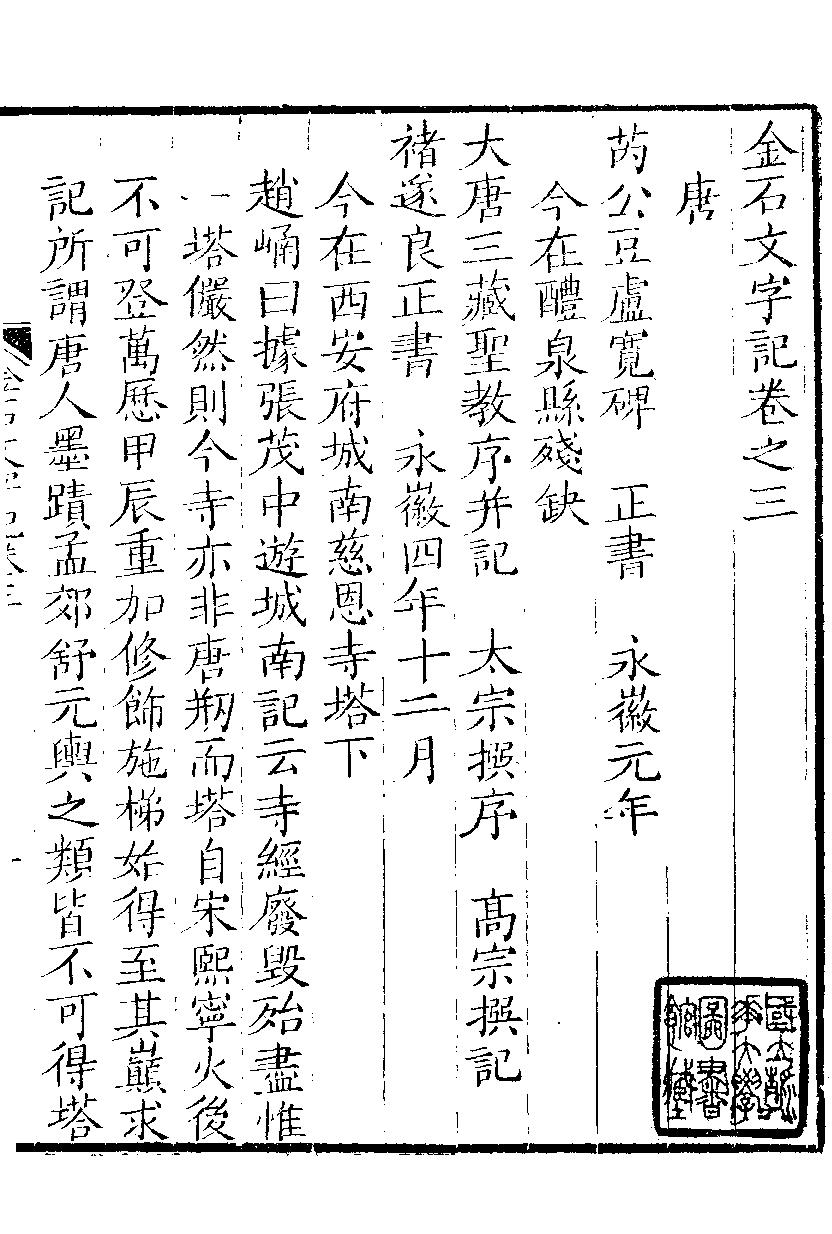 金石文字記卷之三
唐
芮公豆盧寬碑　正書　永徽元年
今在醴泉縣殘缺
大唐三藏聖教序并記　太宗撰序　髙宗撰記
褚遂良正書　永徽四年十二月
今在西安府城南慈恩寺塔下
趙崡曰據張茂中遊城南記云寺經廢毁殆盡惟
一塔儼然則今寺亦非唐剏而塔自宋熙寧火後
不可登萬厯甲辰重加修飾施梯始得至其巔求
記所謂唐人墨蹟孟郊舒元輿之類皆不可得塔
金石文字記卷三